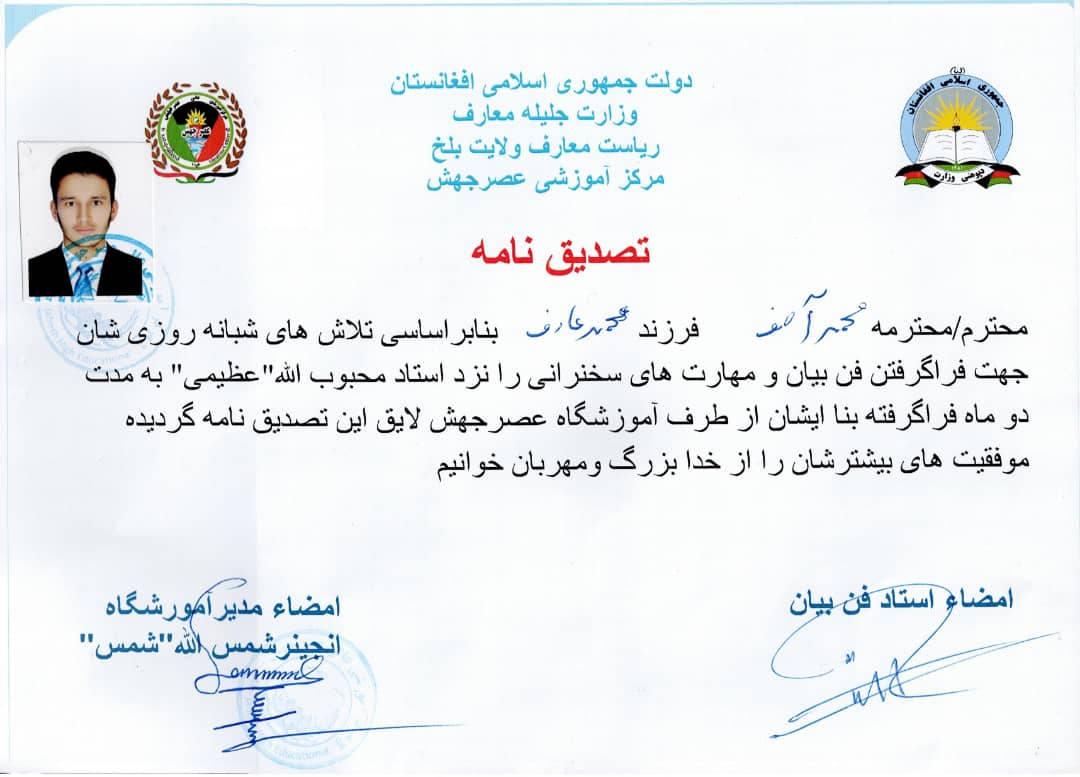 دولت جمهوری اسلامی افغانستان
وزارت جلیله معارف
ریاست معارف ولایت بلخ
مرکز آموزشی عصرجهش
جمهوری اسلامی افغانستان
دپوهنی وزارت
تصدیق نامه
محترم/محترمه محمد آصف فرزند محمد عارف بنابراساسی تلاش های شبانه روزی شان
جهت فراگرفتن فن بیان و مهارت های سخنرانی را نزد استاد محبوب الله"عظیمی" به مدت
دو ماه فراگرفته بنا ایشان از طرف آموزشگاه عصرجهش لایق این تصدیق نامه گردیده
موفقیت های بیشترشان را از خدا بزرگ ومهربان خوانیم
امضاء استاد فن بیان
امضاء مدیرآمورشگاه
انجینرشمس الله"شمس"